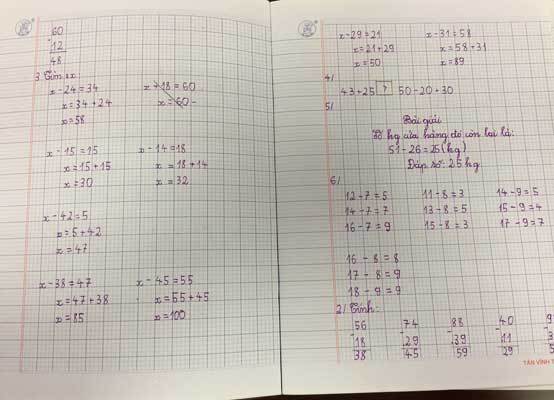 60
- 12
48
3 Tìm x
x - 24 = 34    x + 18 = 60
x = 34 + 24    x = 60 -
x = 58
x - 15 = 15    x - 14 = 18
x = 15 + 15    x = 18 + 14
x = 30    x = 32
x - 42 = 5
x = 5 + 42
x = 47
x - 38 = 47    x - 45 = 55
x = 47 + 38    x = 55 + 45
x = 85    x = 100
x - 29 = 21    x - 31 = 58
x = 21 + 29    x = 58 + 31
x = 50    x = 89
4/
43 + 25 > 50 - 20 + 30
5/
Bài giải
Số kg cửa hàng đó còn lại là:
51 - 26 = 25 (kg)
Đáp số: 25 kg
6/
12 - 7 = 5    11 - 8 = 3    14 - 9 = 5
14 - 7 = 7    13 - 8 = 5    15 - 9 = 4
16 - 7 = 9    15 - 8 = 3    17 - 9 = 7
16 - 8 = 8
17 - 8 = 9
18 - 9 = 9
2/ Tính:
56    74    88    40    9
- 18    - 29    - 39    - 11    - 3
38    45    59    29    5
TÂN VĨNH T